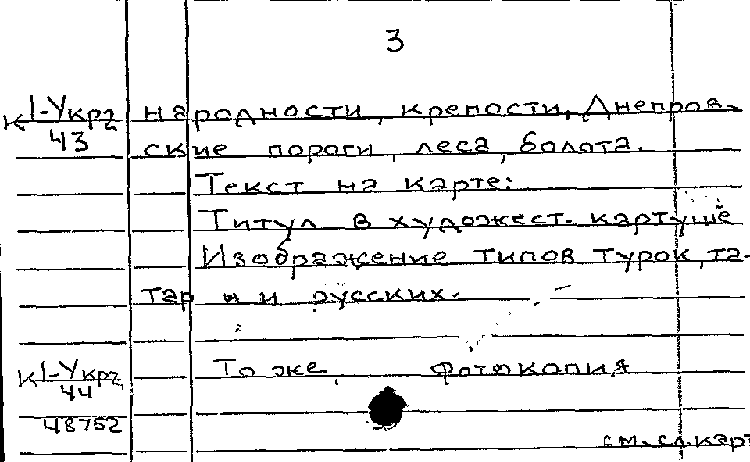 3
К 1-Укр2 народности, крепости, Днепров-
43 ские пороги, леса, болота.
Текст на карте:
Титул в художест. картуше
Изображение типов турок, та-
тар и русских.
К 1-Укр2 То же, Фотокопия
44
48752
см. сл. карт